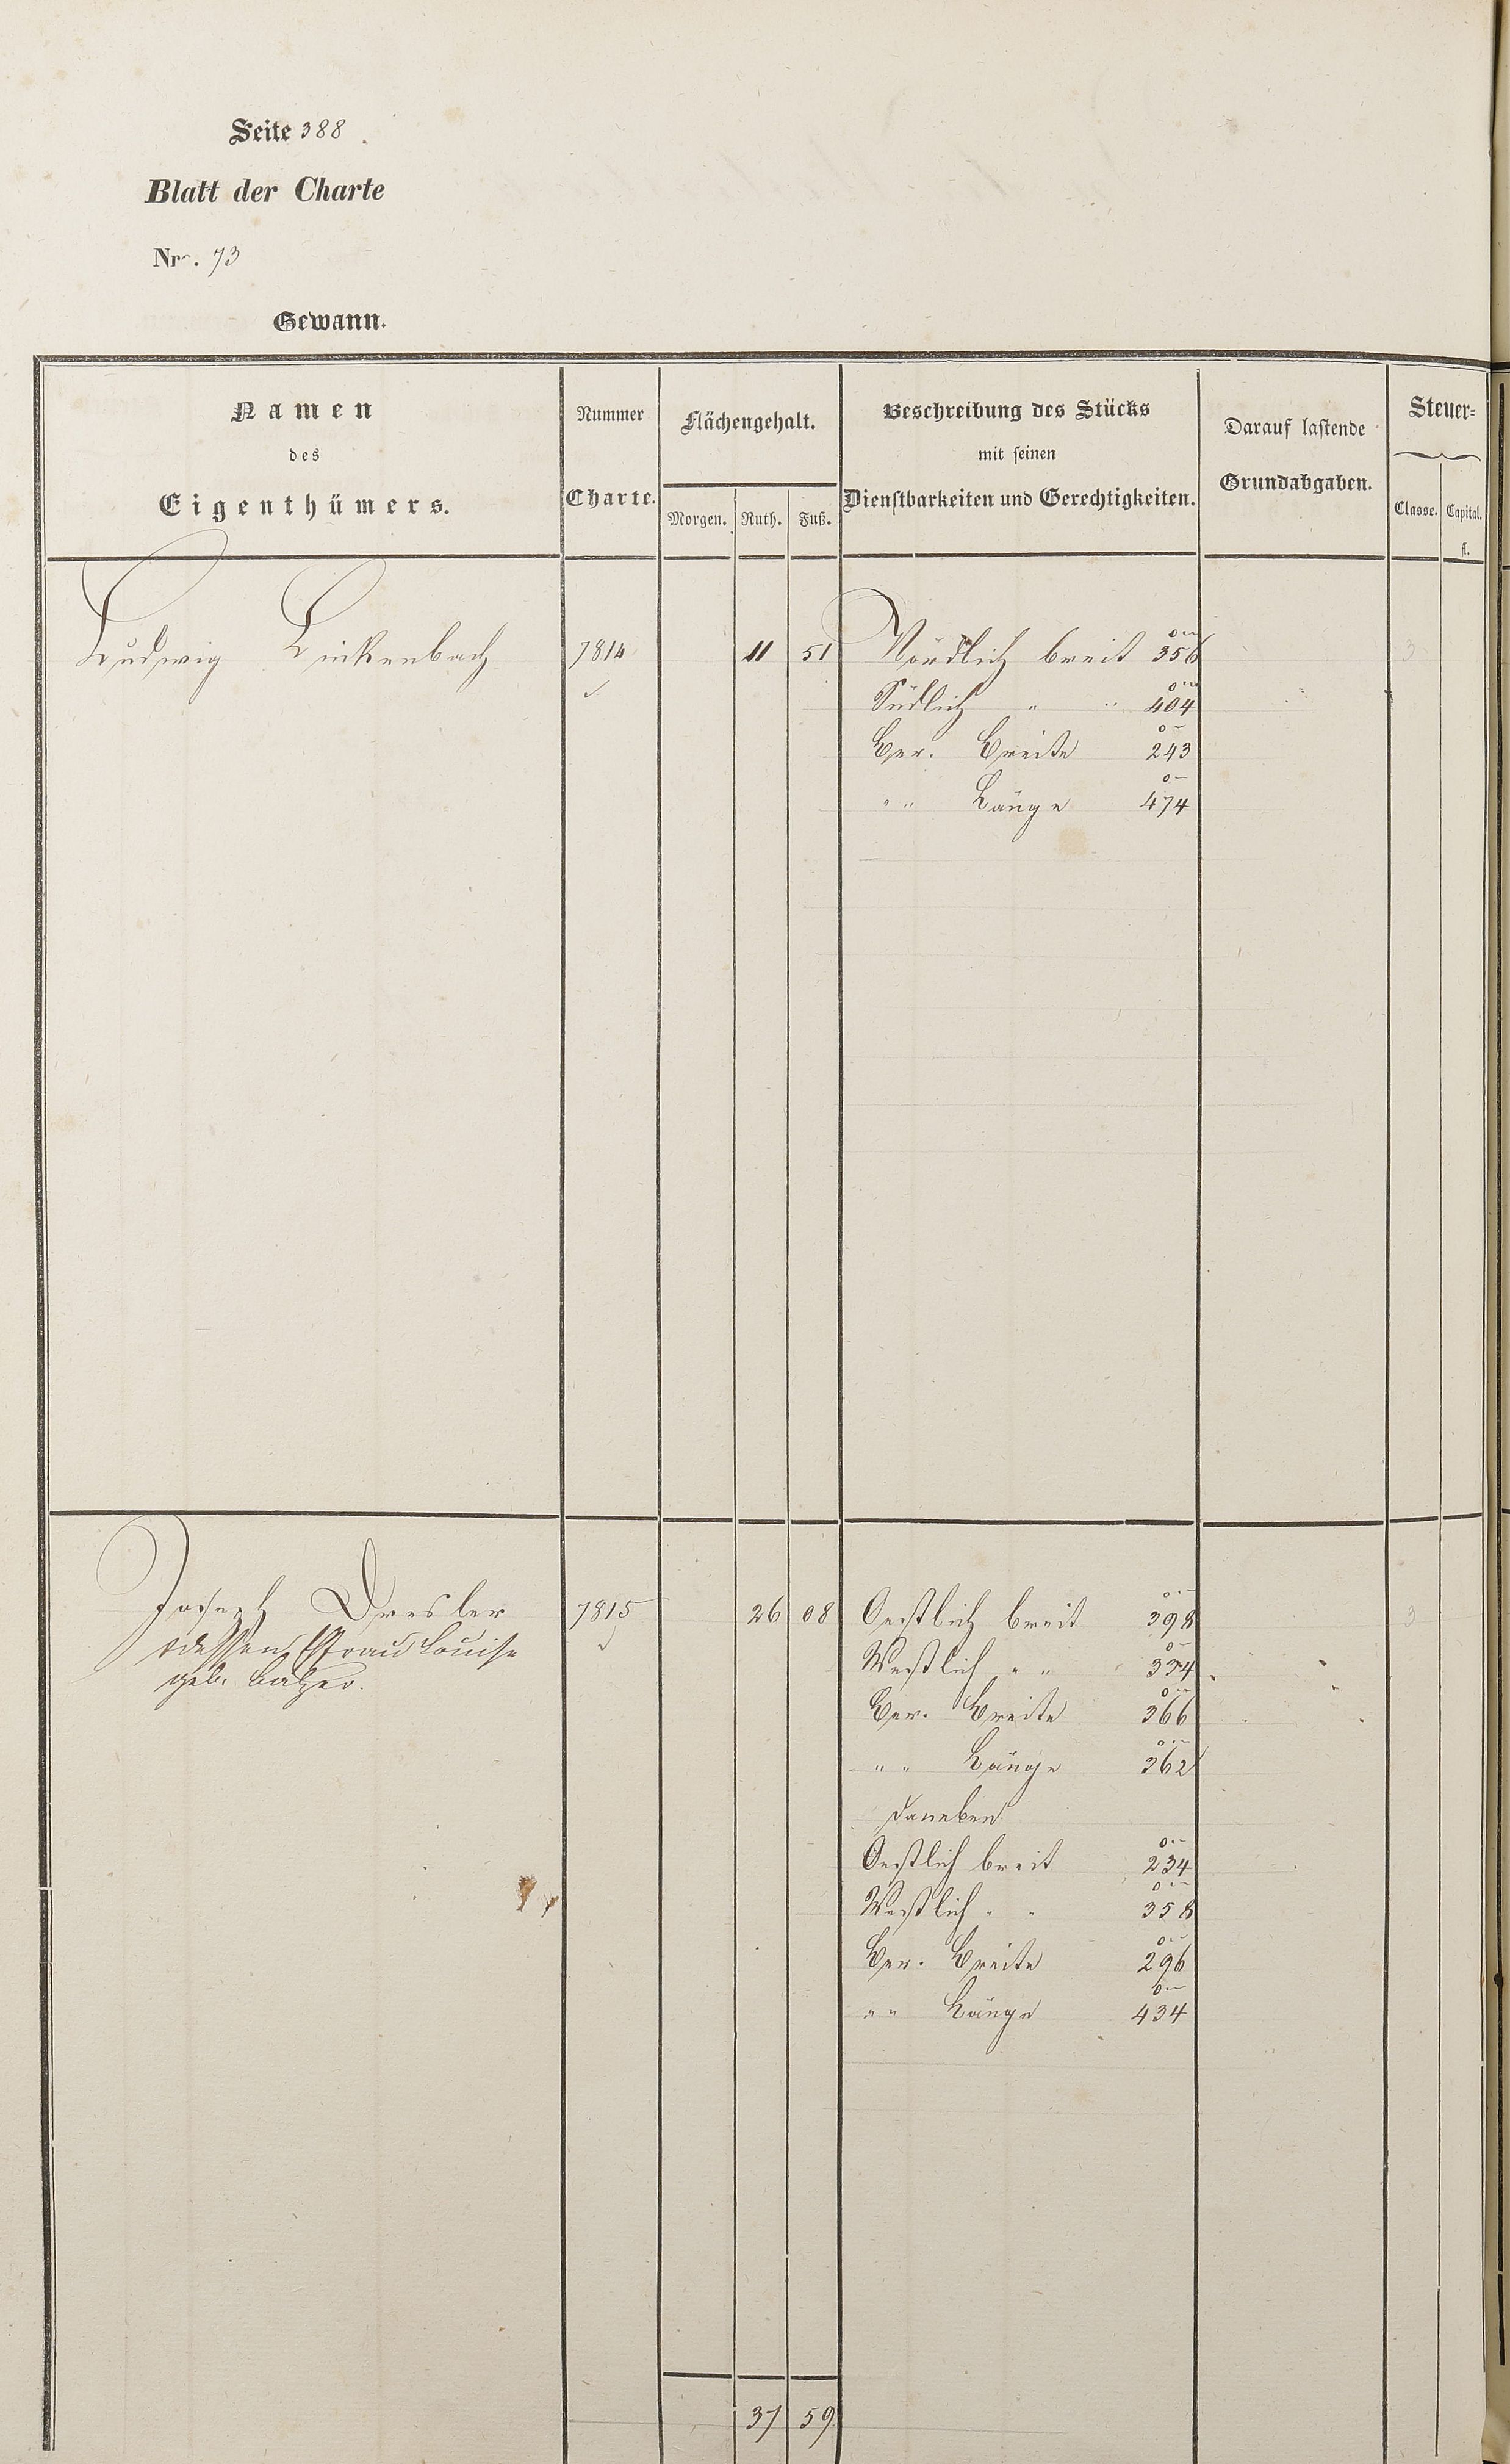 Seite 388.
Blatt der Charte
Nro. 73
Gewann.
Namen des Eigenthümers.
Nummer Charte.
Flächengehalt.
Morgen. Ruth. Fuß.
Beschreibung des Stücks
mit seinen
Dienstbarkeiten und Gerechtigkeiten.
Darauf lastende
Grundabgaben.
Steuer-
Classe. Capital.
fl.
Ludwig Linkenbach 7814 11 51 Nördlich breit 356 3
Südlich " " 404
Ber. Breite 243
" " Länge 474
Joseph Dresler 7815 26 08 Oestlich breit 398 3
dessen Frau Louise
geb. Balzer.
Westlich " " 334
Ber. Breite 366
" " Länge 362
daneben
Oestlich breit 234
Westlich " " 358
Ber. Breite 296
" " Länge 434
37 59